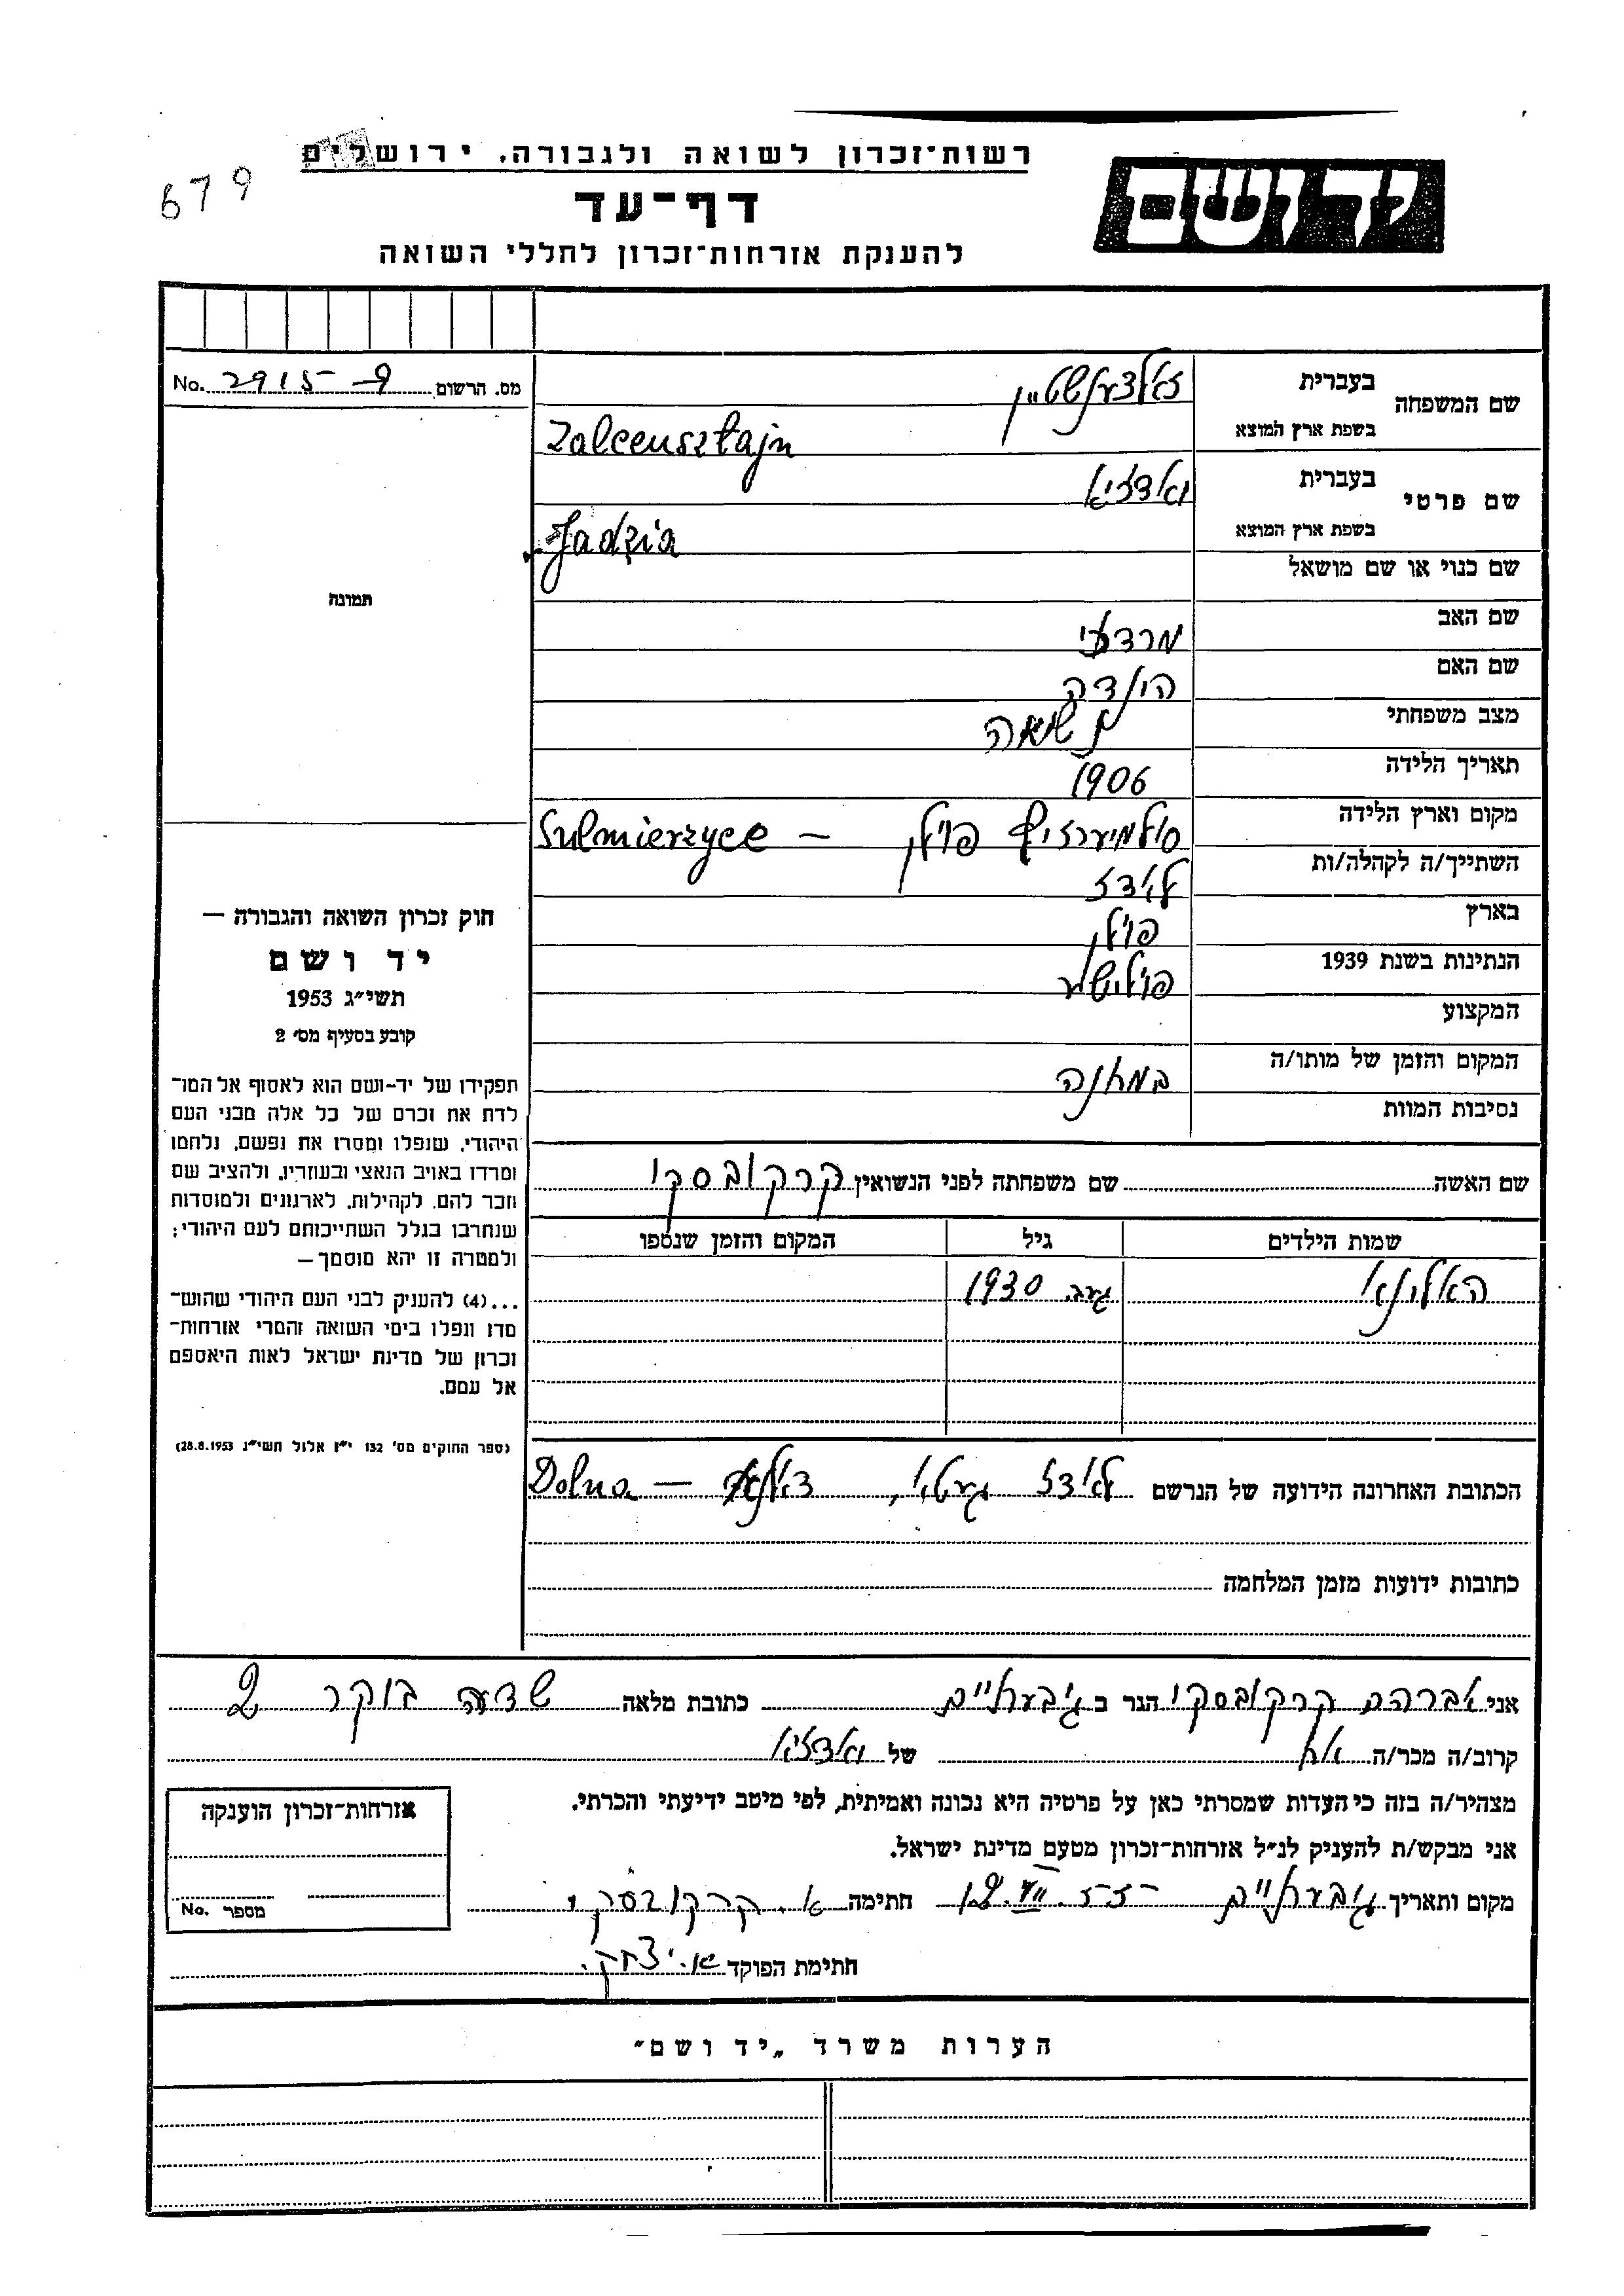 679
רשות־זכרון לשואה ולגבורה, ירושלים
דף־עד
להענקת אזרחות־זכרון לחללי השואה
יד ושם
No. 2915-9 מס. הרשום
תמונה
חוק זכרון השואה והגבורה —
יד ושם
תשי״ג 1953
קובע בסעיף מס׳ 2
תפקידו של יד-ושם הוא לאסוף אל המו־
לדת את זכרם של כל אלה מבני העם
היהודי, שנפלו ומסרו את נפשם, נלחמו
ומרדו באויב הנאצי ובעוזריו, ולהציב שם
וזכר להם, לקהילות, לארגונים ולמוסדות
שנחרבו בגלל השתייכותם לעם היהודי;
ולמטרה זו יהא מוסמך—
...(4) להעניק לבני העם היהודי שהוש־
מדו ונפלו בימי השואה והמרי אזרחות־
זכרון של מדינת ישראל לאות היאספם
אל עמם.
(ספר החוקים מס׳ 132 י״ז אלול תשי״ג 28.8.1953)
שם המשפחה
בעברית זאלצענשטיין
בשפת ארץ המוצא Zalcensztajn
שם פרטי
בעברית יאדזיא
בשפת ארץ המוצא Jadzia
שם כנוי או שם מושאל
שם האב מרדכי
שם האם הינדה
מצב משפחתי נשואה
תאריך הלידה 1906
מקום וארץ הלידה פוילן — Sulmierzyce
השתייך/ה לקהלה/ות לאדז
בארץ פוילן
הנתינות בשנת 1939 פויליש
המקצוע
המקום והזמן של מותו/ה
נסיבות המוות במחנה
שם האשה שם משפחתה לפני הנשואין קרקובסקי
שמות הילדים גיל המקום והזמן שנספו
האלינא געב. 1930
הכתובת האחרונה הידועה של הנרשם לאדז געטאו, דאלנא — Dolna
כתובות ידועות מזמן המלחמה
אני אברהם קרקובסקי הגר ב גיבעתיים כתובת מלאה שדה בוקר 2
קרוב/ה מכר/ה אח של יאדזיא
מצהיר/ה בזה כי העדות שמסרתי כאן על פרטיה היא נכונה ואמיתית, לפי מיטב ידיעתי והכרתי.
אני מבקש/ת להעניק לנ״ל אזרחות־זכרון מטעם מדינת ישראל.
מקום ותאריך גיבעתיים 12.VII.55 חתימה א. קרקובסקי
חתימת הפוקד א. יצחק.
אזרחות־זכרון הוענקה
מספר No.
הערות משרד „יד ושם״